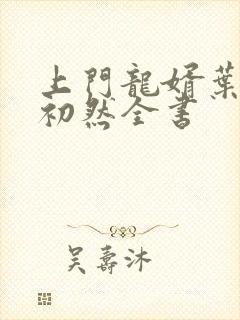 上門龍婿葉
初然全書
吳壽沐